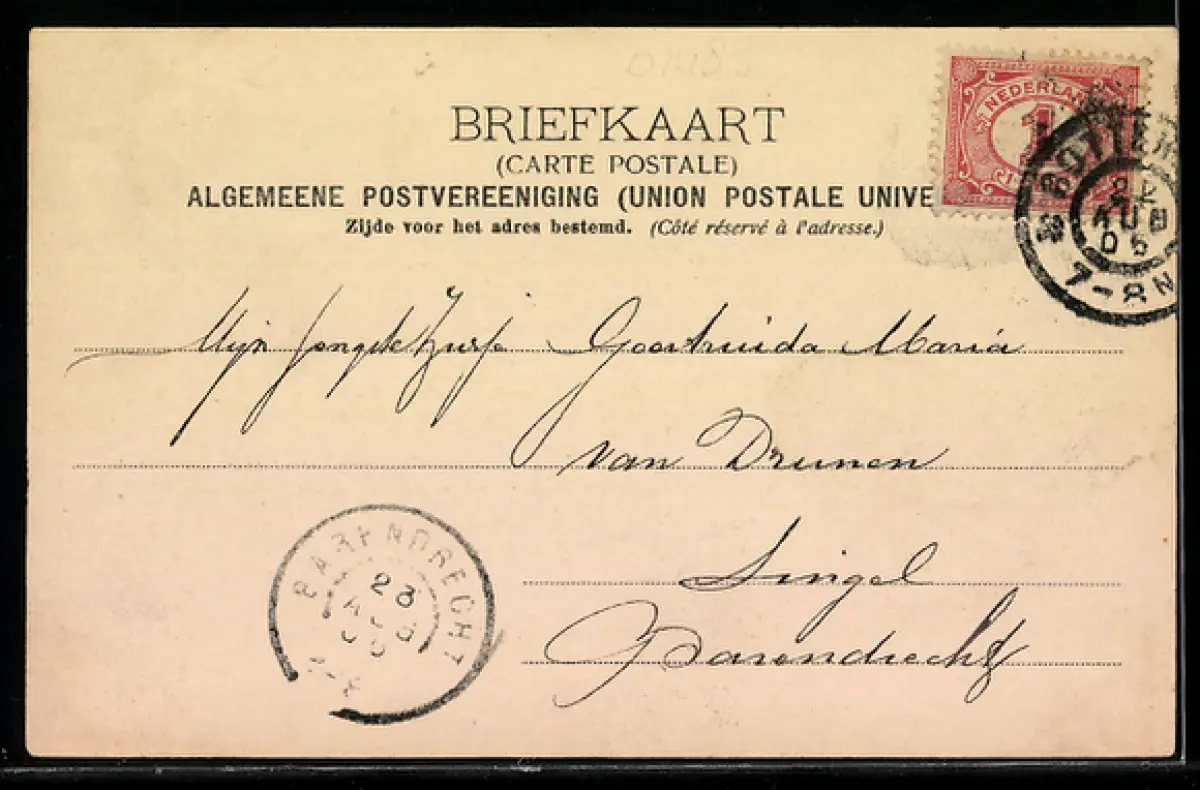 BRIEFKAART
(CARTE POSTALE)
ALGEMEENE POSTVEREENIGING (UNION POSTALE UNIVE
Zijde voor het adres bestemd. (Côté réservé à l'adresse.)
NEDERLAN
1
ROTTER
AUG
05
7-8N
Mejn Geertruida Maria
van Drunen
Singel
Barendrecht
BARENDRECHT
23
AUG